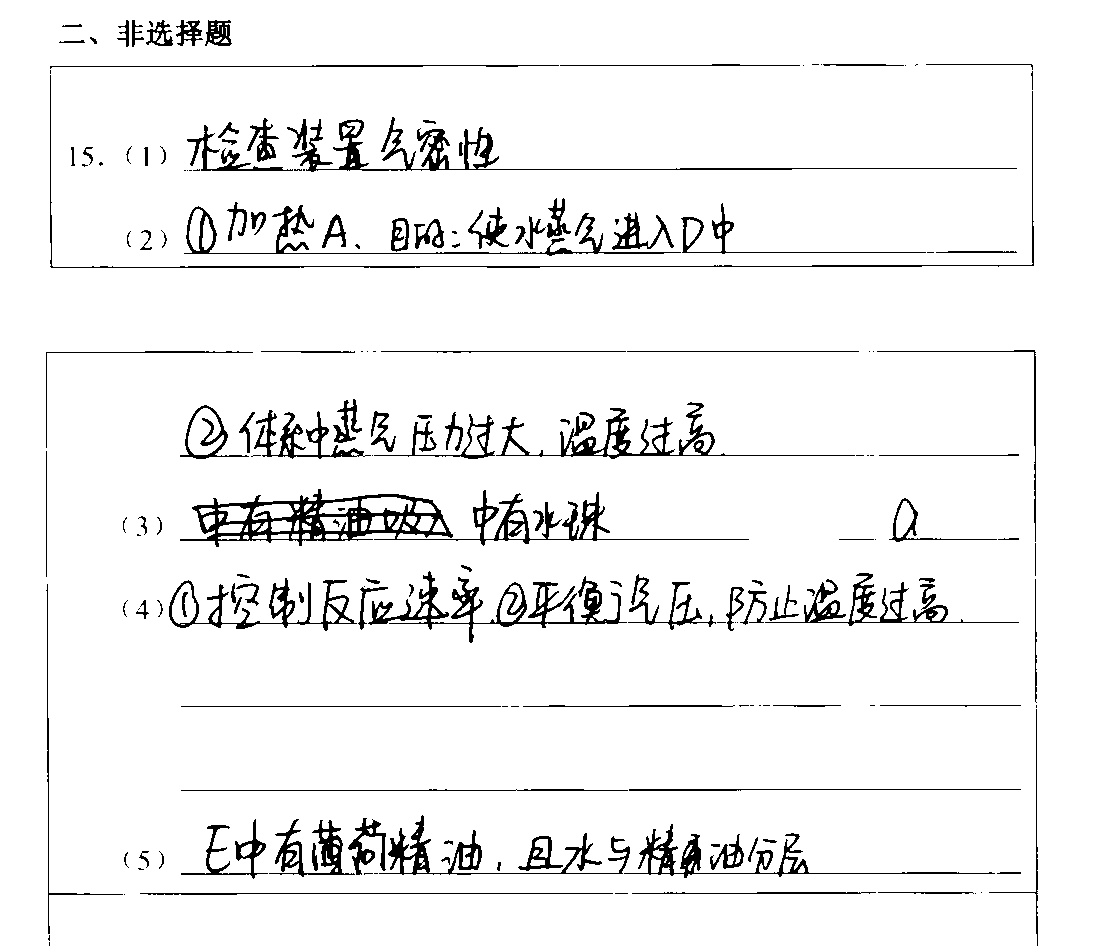 二、非选择题
15.（1）检查装置气密性
（2）①加热A、目的：使水蒸气进入D中
②体系中蒸气压力过大，温度过高.
（3）中有水珠 a
（4）①控制反应速率.②平衡气压，防止温度过高.
（5）E中有薄荷精油，且水与精油分层